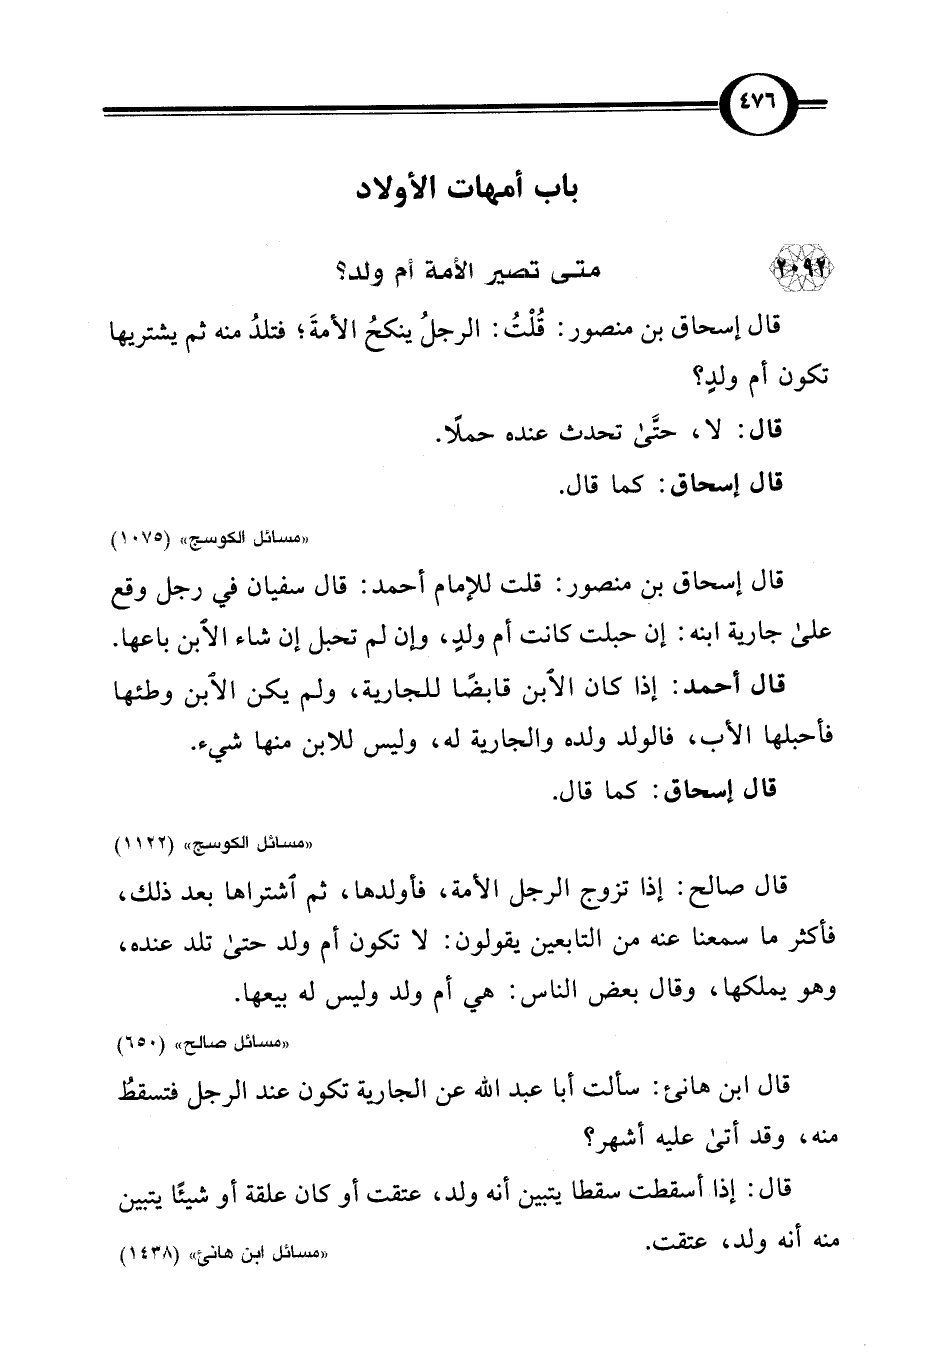 ٤٧٦
باب أمهات الأولاد
٢٠٩٢ متى تصير الأمة أم ولد؟
قال إسحاق بن منصور: قُلْتُ: الرجلُ ينكحُ الأمةَ؛ فتلدُ منه ثم يشتريها
تكون أم ولدٍ؟
قال: لا، حتَّىٰ تحدث عنده حملًا.
قال إسحاق: كما قال.
«مسائل الكوسج» (١٠٧٥)
قال إسحاق بن منصور: قلت للإمام أحمد: قال سفيان في رجل وقع
علىٰ جارية ابنه: إن حبلت كانت أم ولدٍ، وإن لم تحبل إن شاء الٱبن باعها.
قال أحمد: إذا كان الٱبن قابضًا للجارية، ولم يكن الٱبن وطئها
فأحبلها الأب، فالولد ولده والجارية له، وليس للابن منها شيء.
قال إسحاق: كما قال.
«مسائل الكوسج» (١١٢٢)
قال صالح: إذا تزوج الرجل الأمة، فأولدها، ثم ٱشتراها بعد ذلك،
فأكثر ما سمعنا عنه من التابعين يقولون: لا تكون أم ولد حتىٰ تلد عنده،
وهو يملكها، وقال بعض الناس: هي أم ولد وليس له بيعها.
«مسائل صالح» (٦٥٠)
قال ابن هانئ: سألت أبا عبد الله عن الجارية تكون عند الرجل فتسقطُ
منه، وقد أتىٰ عليه أشهر؟
قال: إذا أسقطت سقطا يتبين أنه ولد، عتقت أو كان علقة أو شيئًا يتبين
منه أنه ولد، عتقت. «مسائل ابن هانئ» (١٤٣٨)